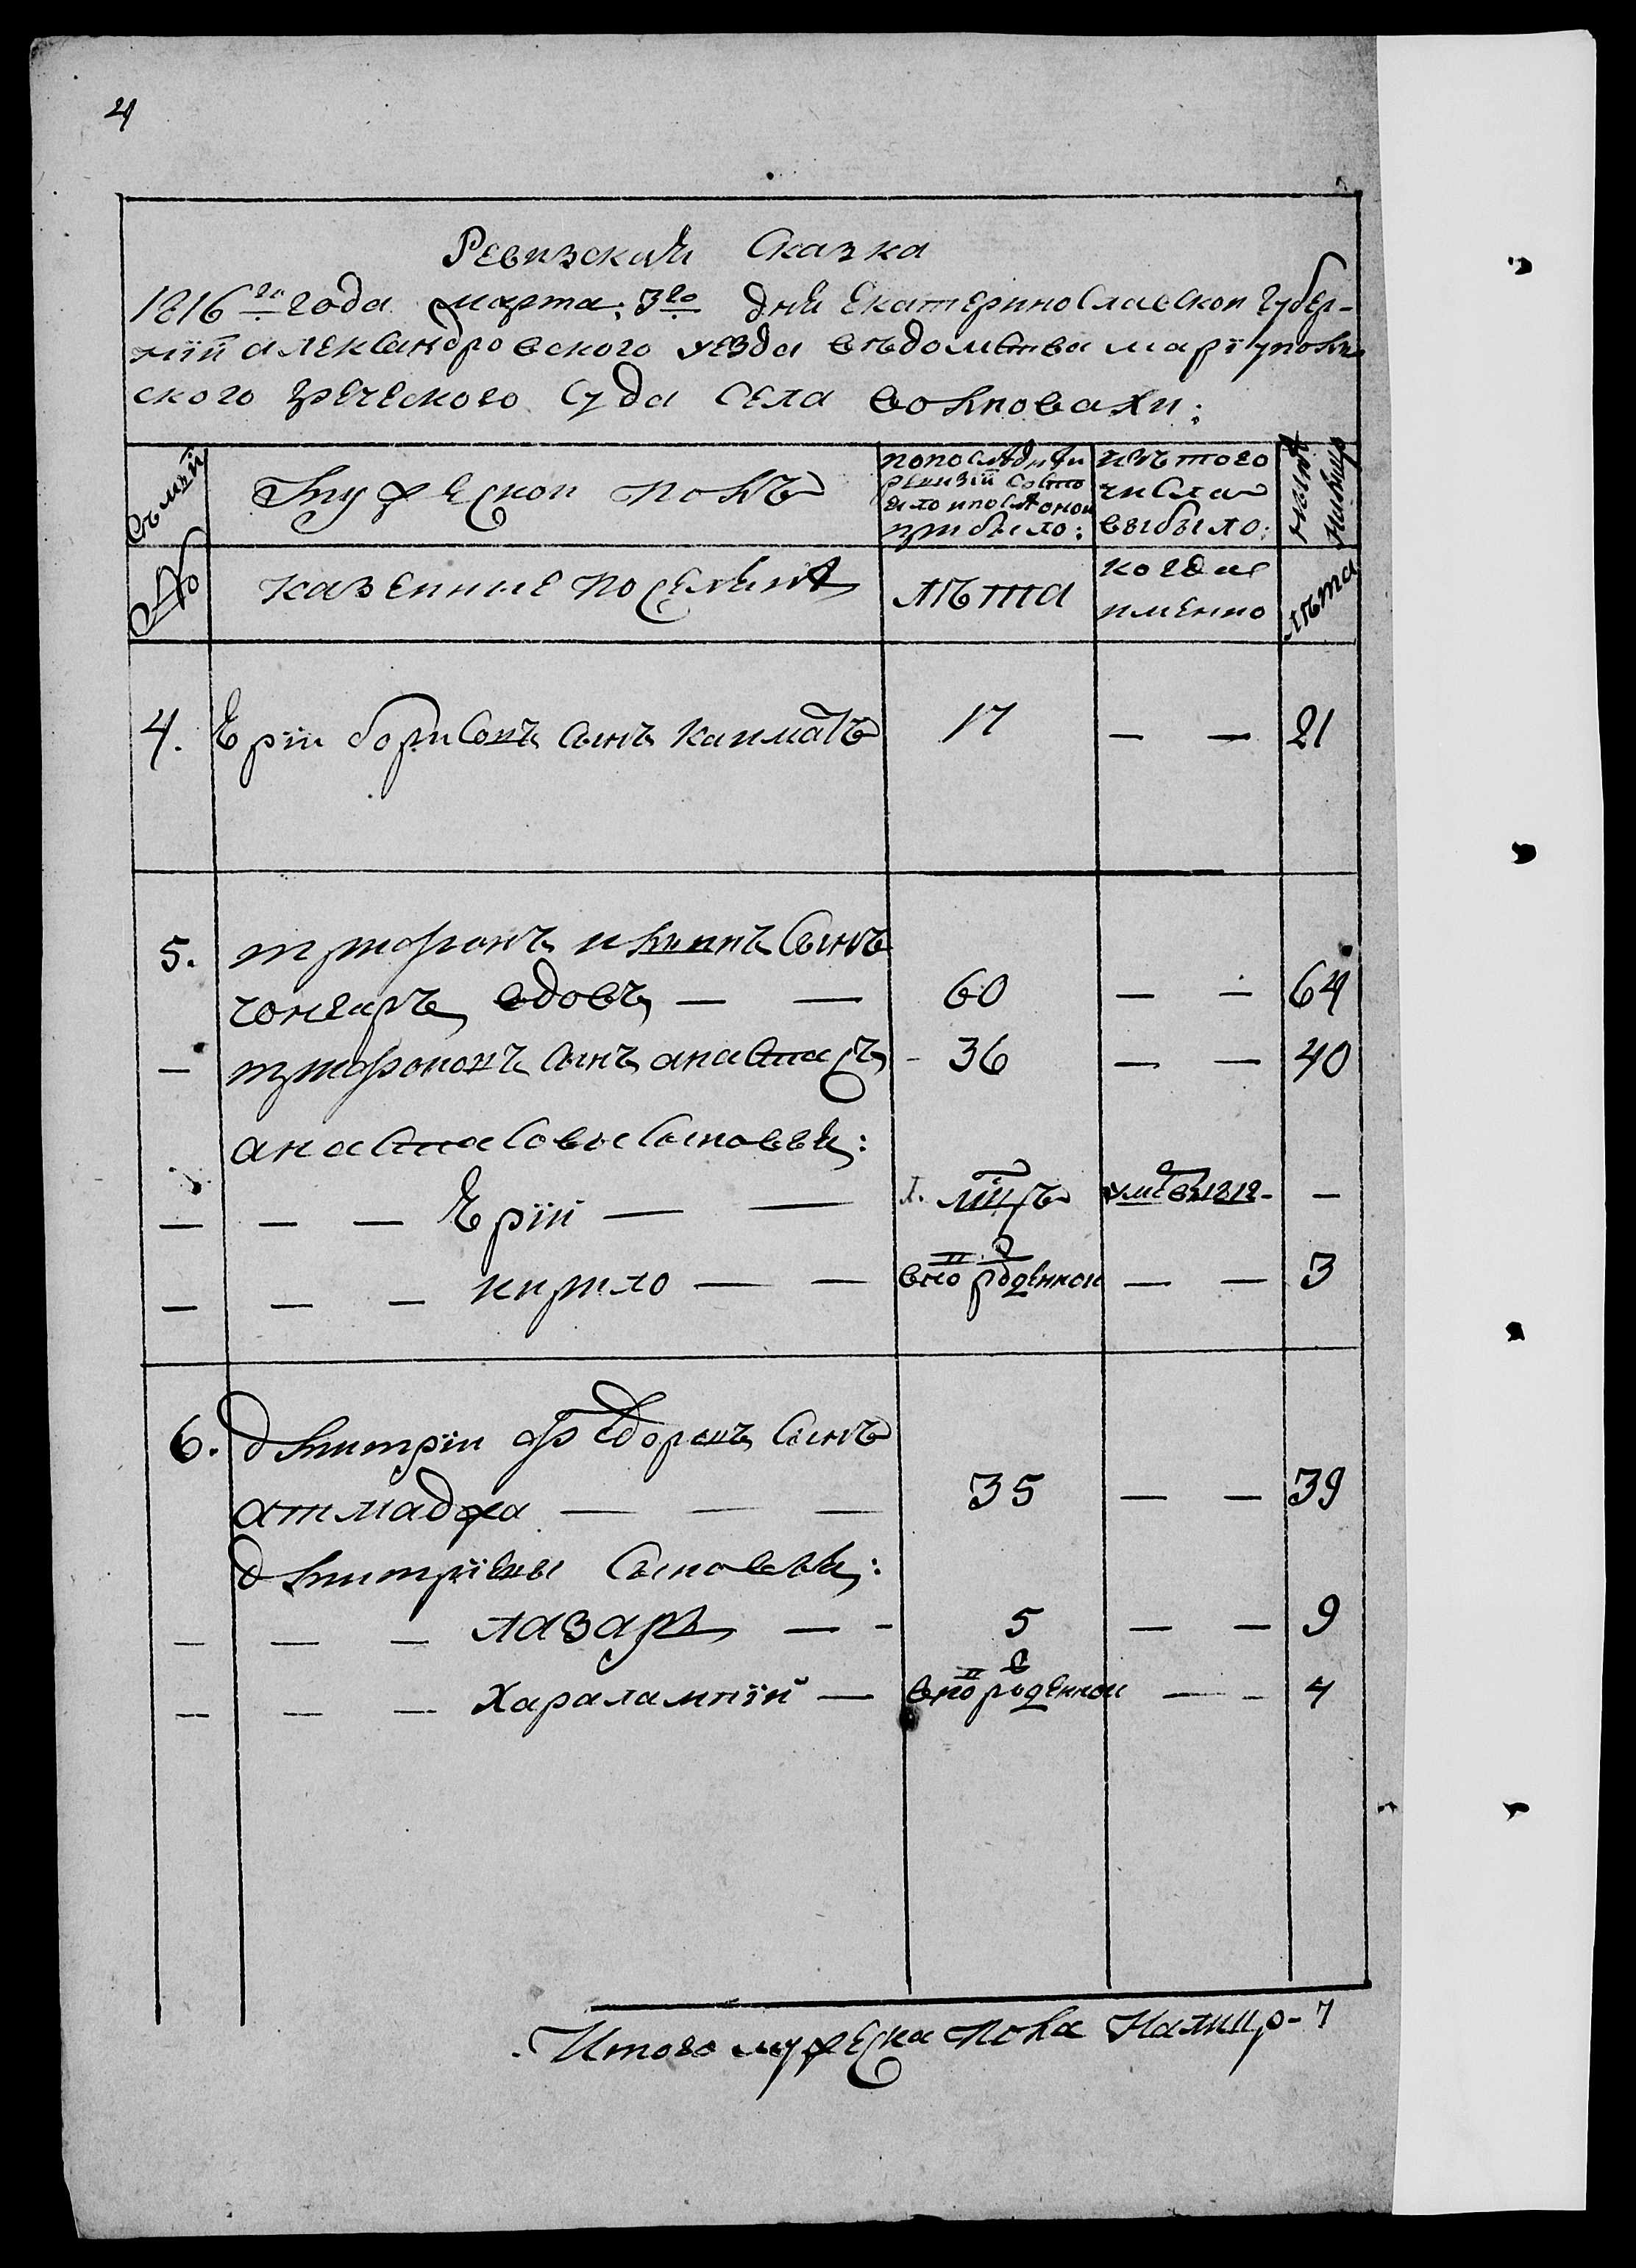 4
Ревизская Сказка
1816го года марта: 3го дня Екатеринославской губер-
нїи александровского уезда ведомства марїупольс
ского греческого суда села волновахи:
Семьи
мужеской полъ
по последней
ревизїи состо
яло и после оной
прибыло:
изъ того
числа
выбыло:
ныне
на лицо
№
казенные поселяня
лѣта
когда
именно
лѣта
4. Ерїи борисовъ сынъ каимаъ 17 — — 21
5. трифонъ ильинъ сынъ
чонгаръ вдовъ — — 60 — — 64
— трифоновъ сынъ анастасъ - 36 — — 40
анастасовы сыновья:
— — — Ерїй — — 1. мцъ уме въ 1812 - —
— — — кирило — — вно рожденной — — 3
6. дмитрїи федоровъ сынъ
атмаджа — — — 35 — — 39
дмитрїевы сыновья:
— — — лазарь — - 5 — — 9
— — — Харалампїй — вно рожденной — - 4
Итого мужеска пола Налицо - 7